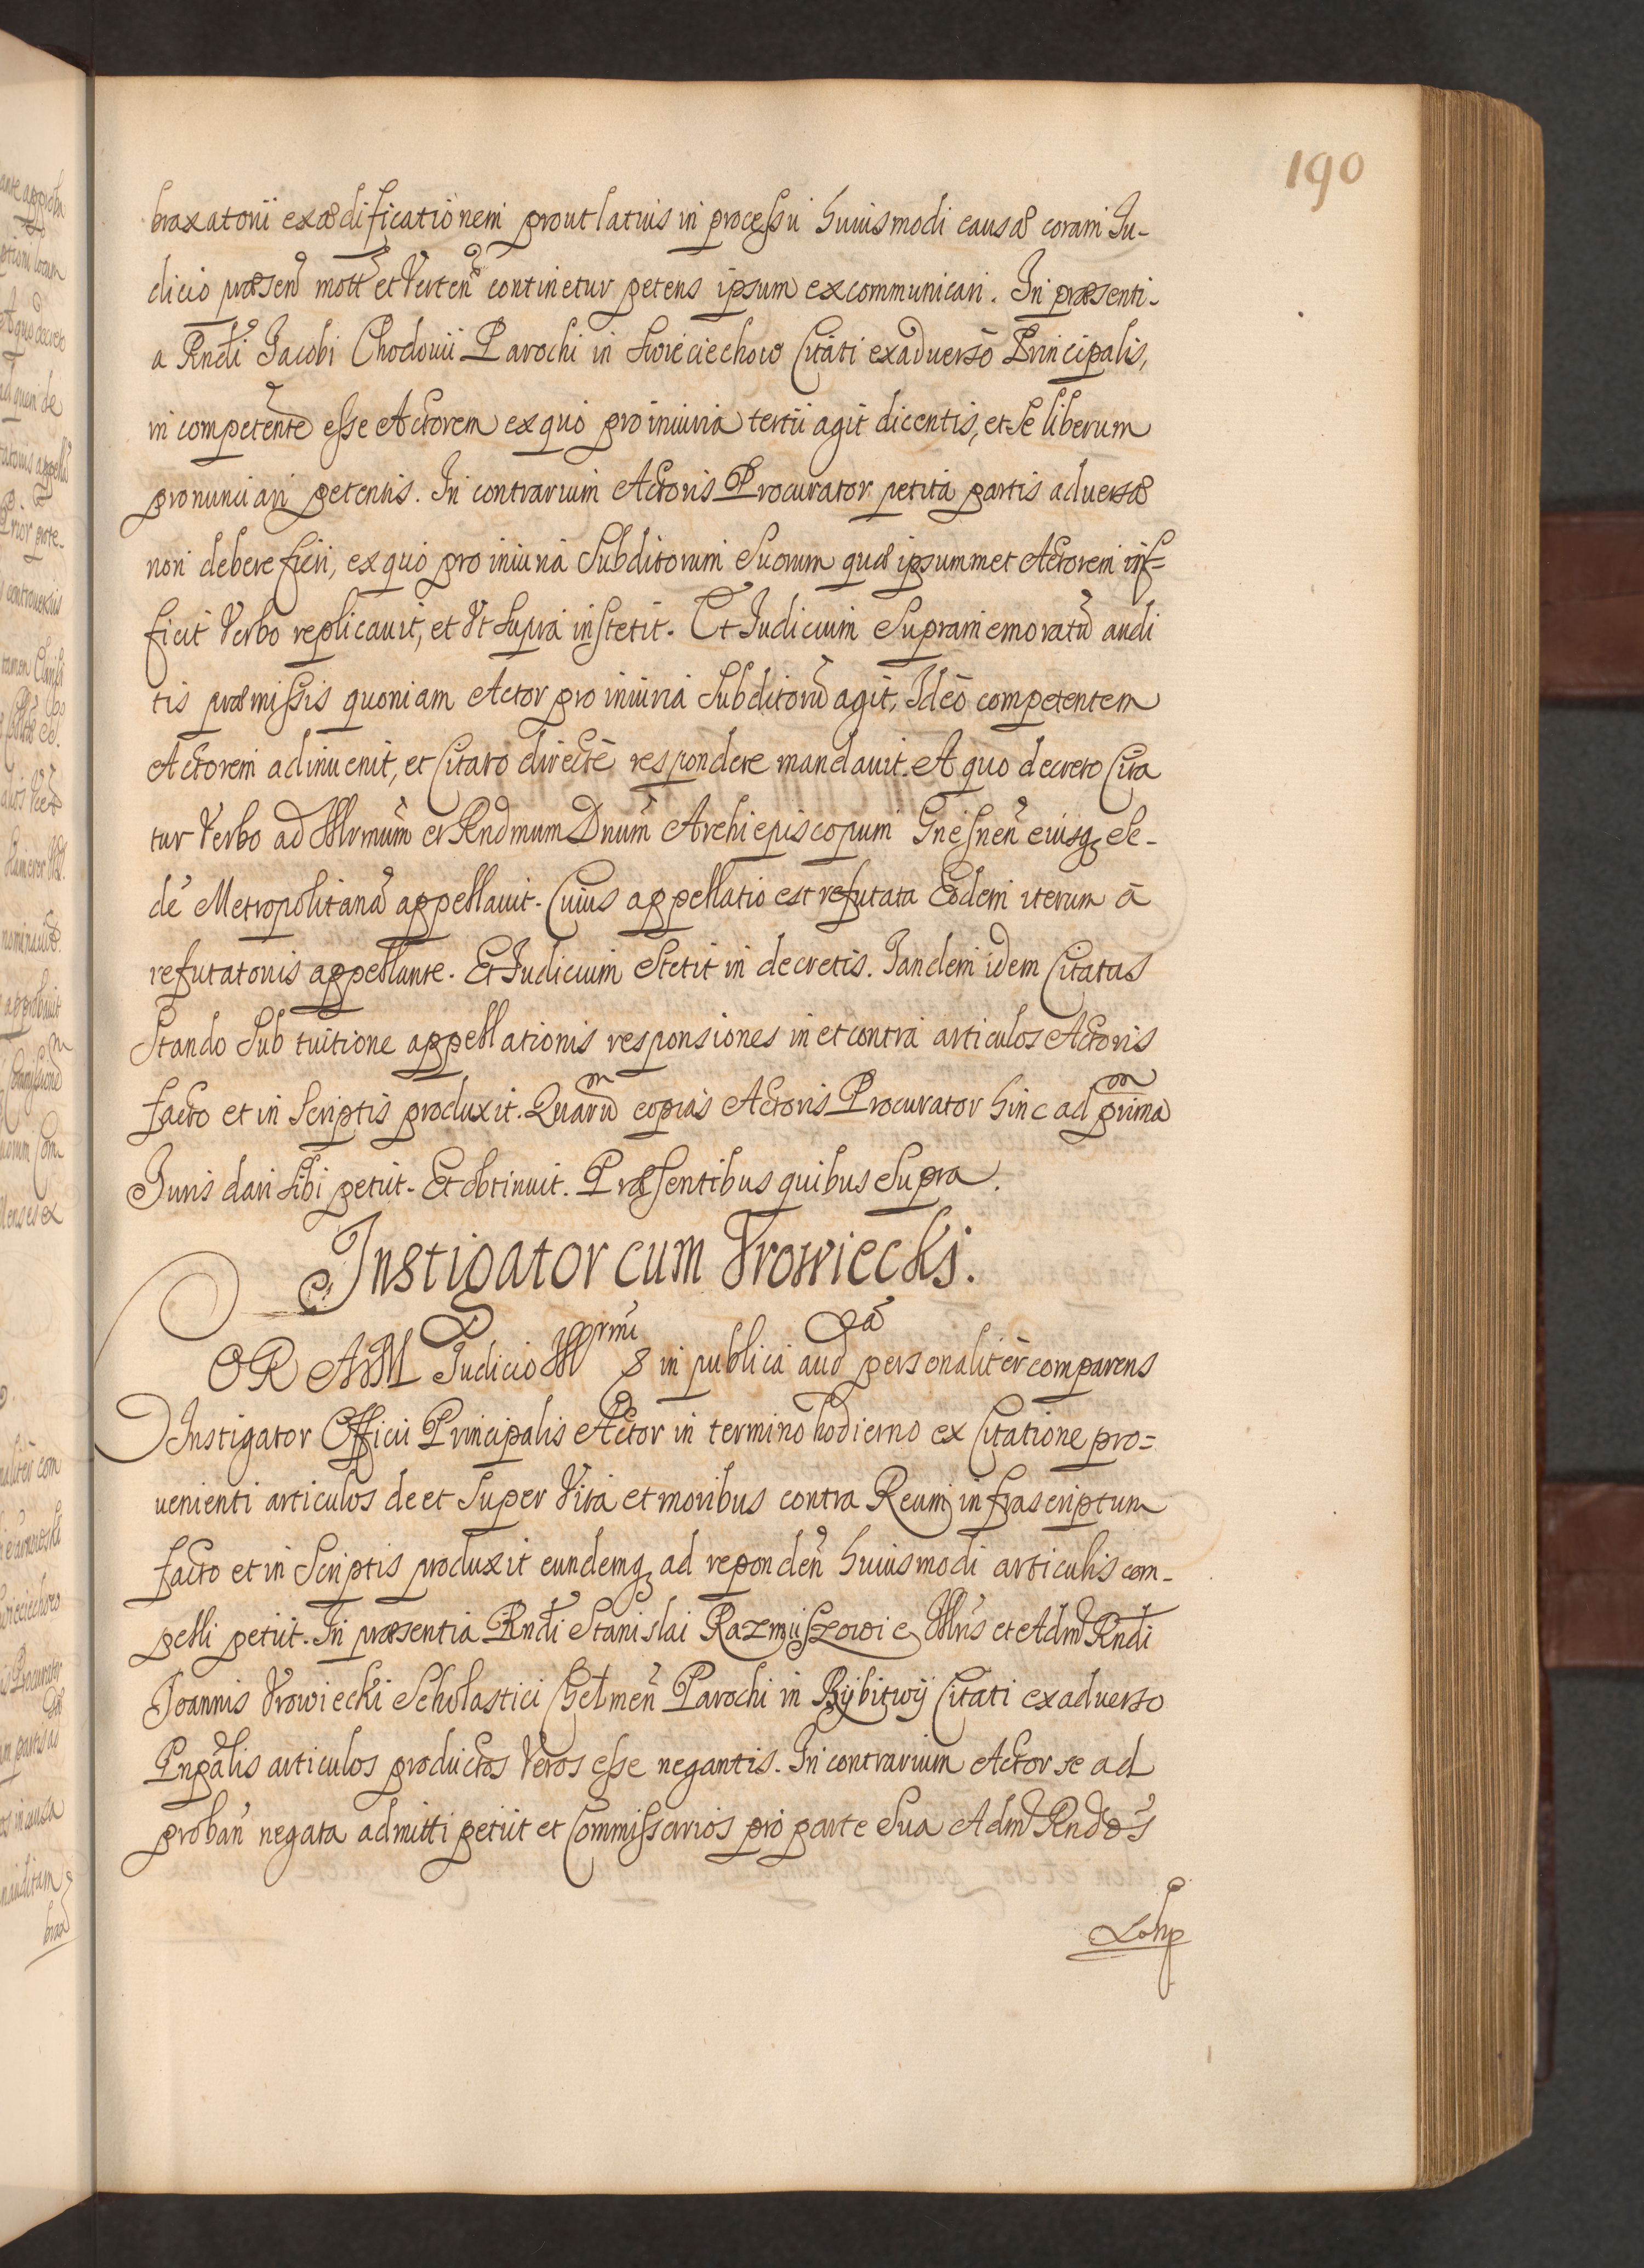 190
braxatorii exædificationem prout latius in processu huiusmodi causæ coram Ju-
dicio præsen mott et Verten continetur petens ipsum excommunicari. In præsenti-
a Rndi Jacobi Chodouii Parochi in Swieciechow Citati exaduerso Principalis,
incompetente esse Actorem ex quo pro iniuria tertii agit dicentis, et se liberum
pronunciari petentis. In contrarium Actoris Procurator petita partis aduersæ
non debere fieri, ex quo pro iniuria Subditorum Suorum quæ ipsummet Actorem inf=
ficit Verbo replicauit, et Vt Supra institit. Et Iudicium Supramemoratū audi
tis præmissis quoniam Actor pro iniuria Subditorū agit, Ideo competentem
Actorem adinuenit, et Citato directe respondere mandauit. A quo decreto Cita
tur Verbo ad Illrmum et Rndmum Dnum Archiepiscopum Gnesnen eiusq Se-
de Metropolitana appellauit. Cuius appellatio est refutata Eodem iterum a
refutatoriis appellante. Et Iudicium Stetit in decretis. Tandem idem Citatus
Stando Sub tuitione appellationis responsiones in et contra articulos Actoris
facto et in Scriptis produxit. Quarū copias Actoris Procurator hinc ad prima
Juris dari Sibi petiit. Et obtinuit. Præsentibus quibus Supra.
Instigator cum Vrowiecki.
CORAM Iudicio Illrmi & in publica aud personaliter comparens
Instigator Officii Principalis Actor in termino hodierno ex Citatione pro=
uenienti articulos de et Super Vita et moribus contra Reum infrascriptum
facto et in Scriptis produxit eundemq ad reponden huiusmodi articulis com-
pelli petiit. In præsentia Rndi Stanislai Razmijszowic Mris et Adm Rndi
Joannis Vrowiecki Scholastici Chelmen Parochi in Rijbitwij Citati exaduerso
Pnpalis articulos productos Veros esse negantis. In contrarium Actor se ad
proban negata admitti petiit et Commissarios pro parte Sua Adm Rndos